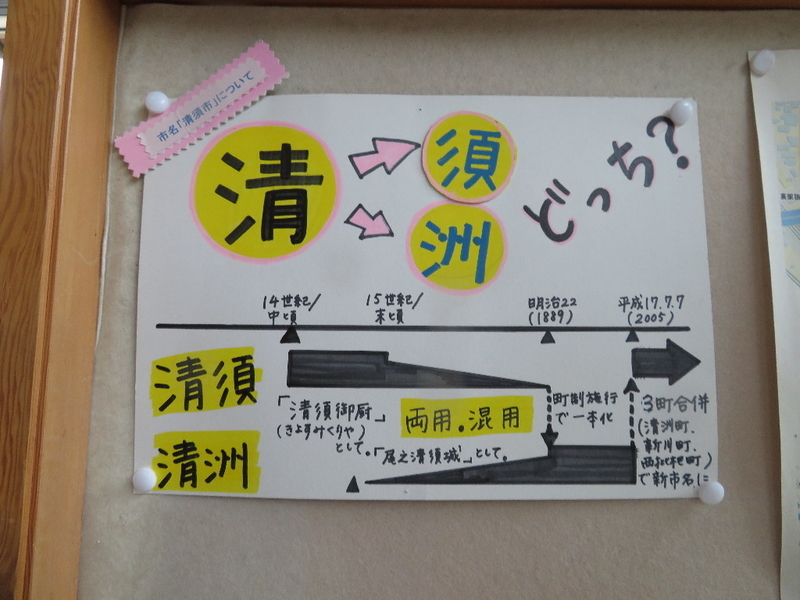 市名「清須市」について
清
須
洲
どっち?
14世紀/
中頃
15世紀/
末頃
明治22
(1889)
平成17.7.7
(2005)
清須
「清須御厨」
(きよすみくりや)
として。
両用。混用
町制施行
で一本化
3町合併
(清洲町、
新川町、
西枇杷町)
で新市名に
清洲
「尾之清須城」として。